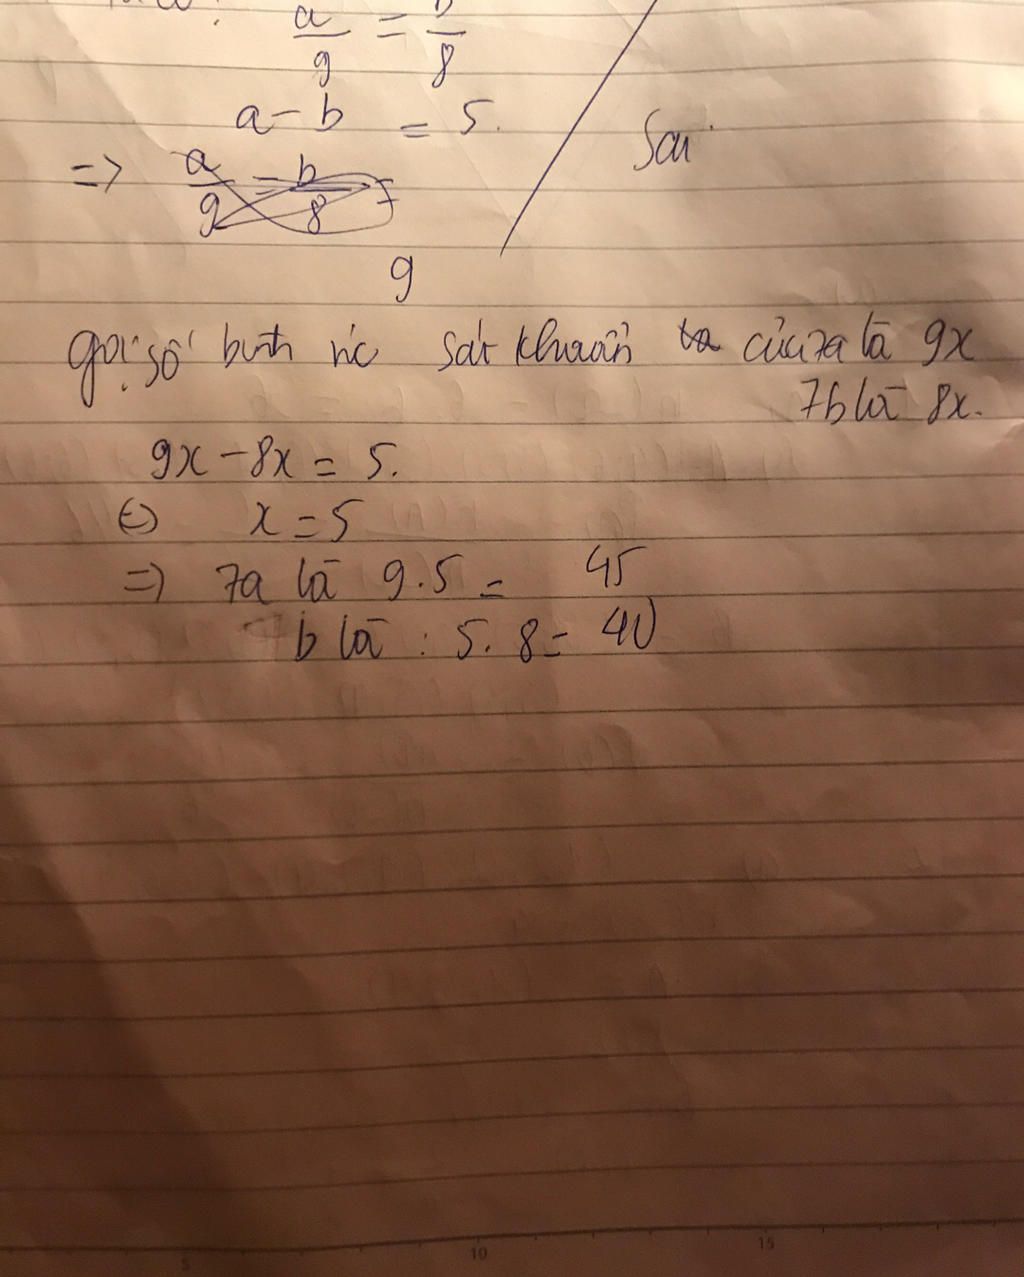 a/9 = b/8
a - b = 5.
Sai
=> a/9 = b/8 =
9
gọi số bình nc sát khuẩn của 7a là 9x
7b là 8x.
9x - 8x = 5.
<=> x = 5
=> 7a là 9.5 = 45
b là : 5.8 = 40
5 10 15